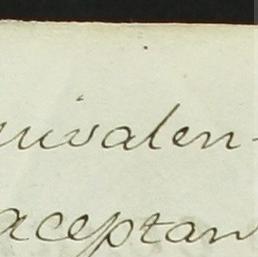 uivalen-
aceptan